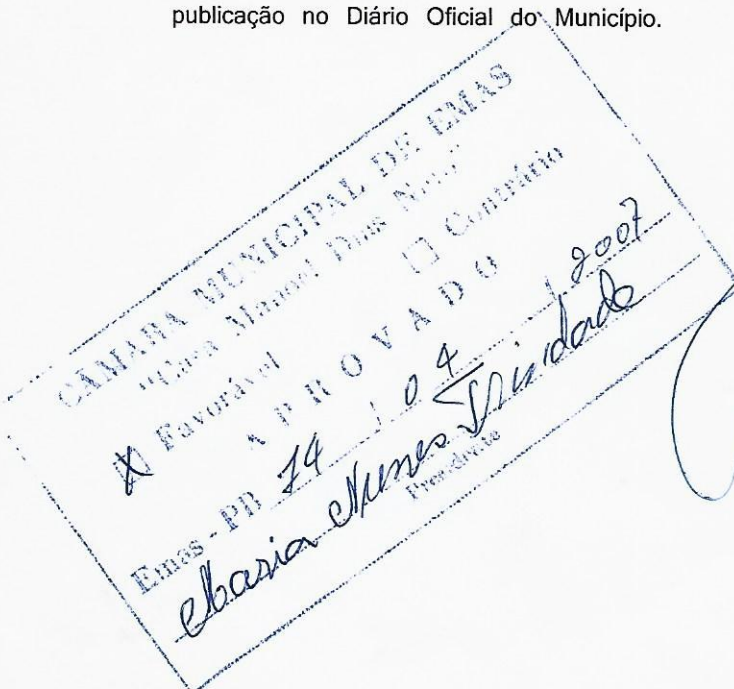 publicação no Diário Oficial do Município.
CÂMARA MUNICIPAL DE EMAS
"Casa Manoel Dias
[X] Favorável [ ] Contrário
APROVADO
Emas - PB 14 / 04 / 2007
Maria Nunes Trindade
Presidente